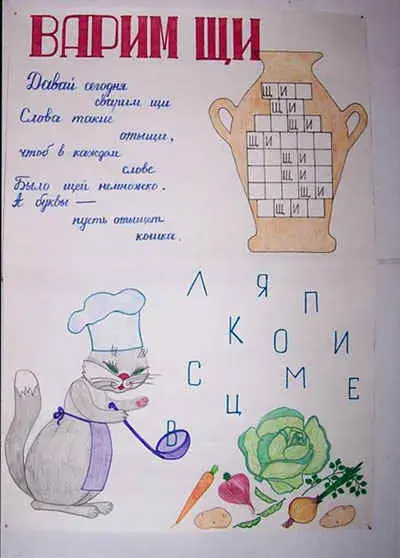 ВАРИМ ЩИ
Давай сегодня
сварим щи
Слова такие
отыщи,
чтоб в каждом
слове
Было щей немножко.
А буквы —
пусть отыщет
кошка.
ЩИ
ЩИ
ЩИ
ЩИ
ЩИ
ЩИ
ЩИ
ЩИ
Л Я П
К О И
С Ц М Е
В